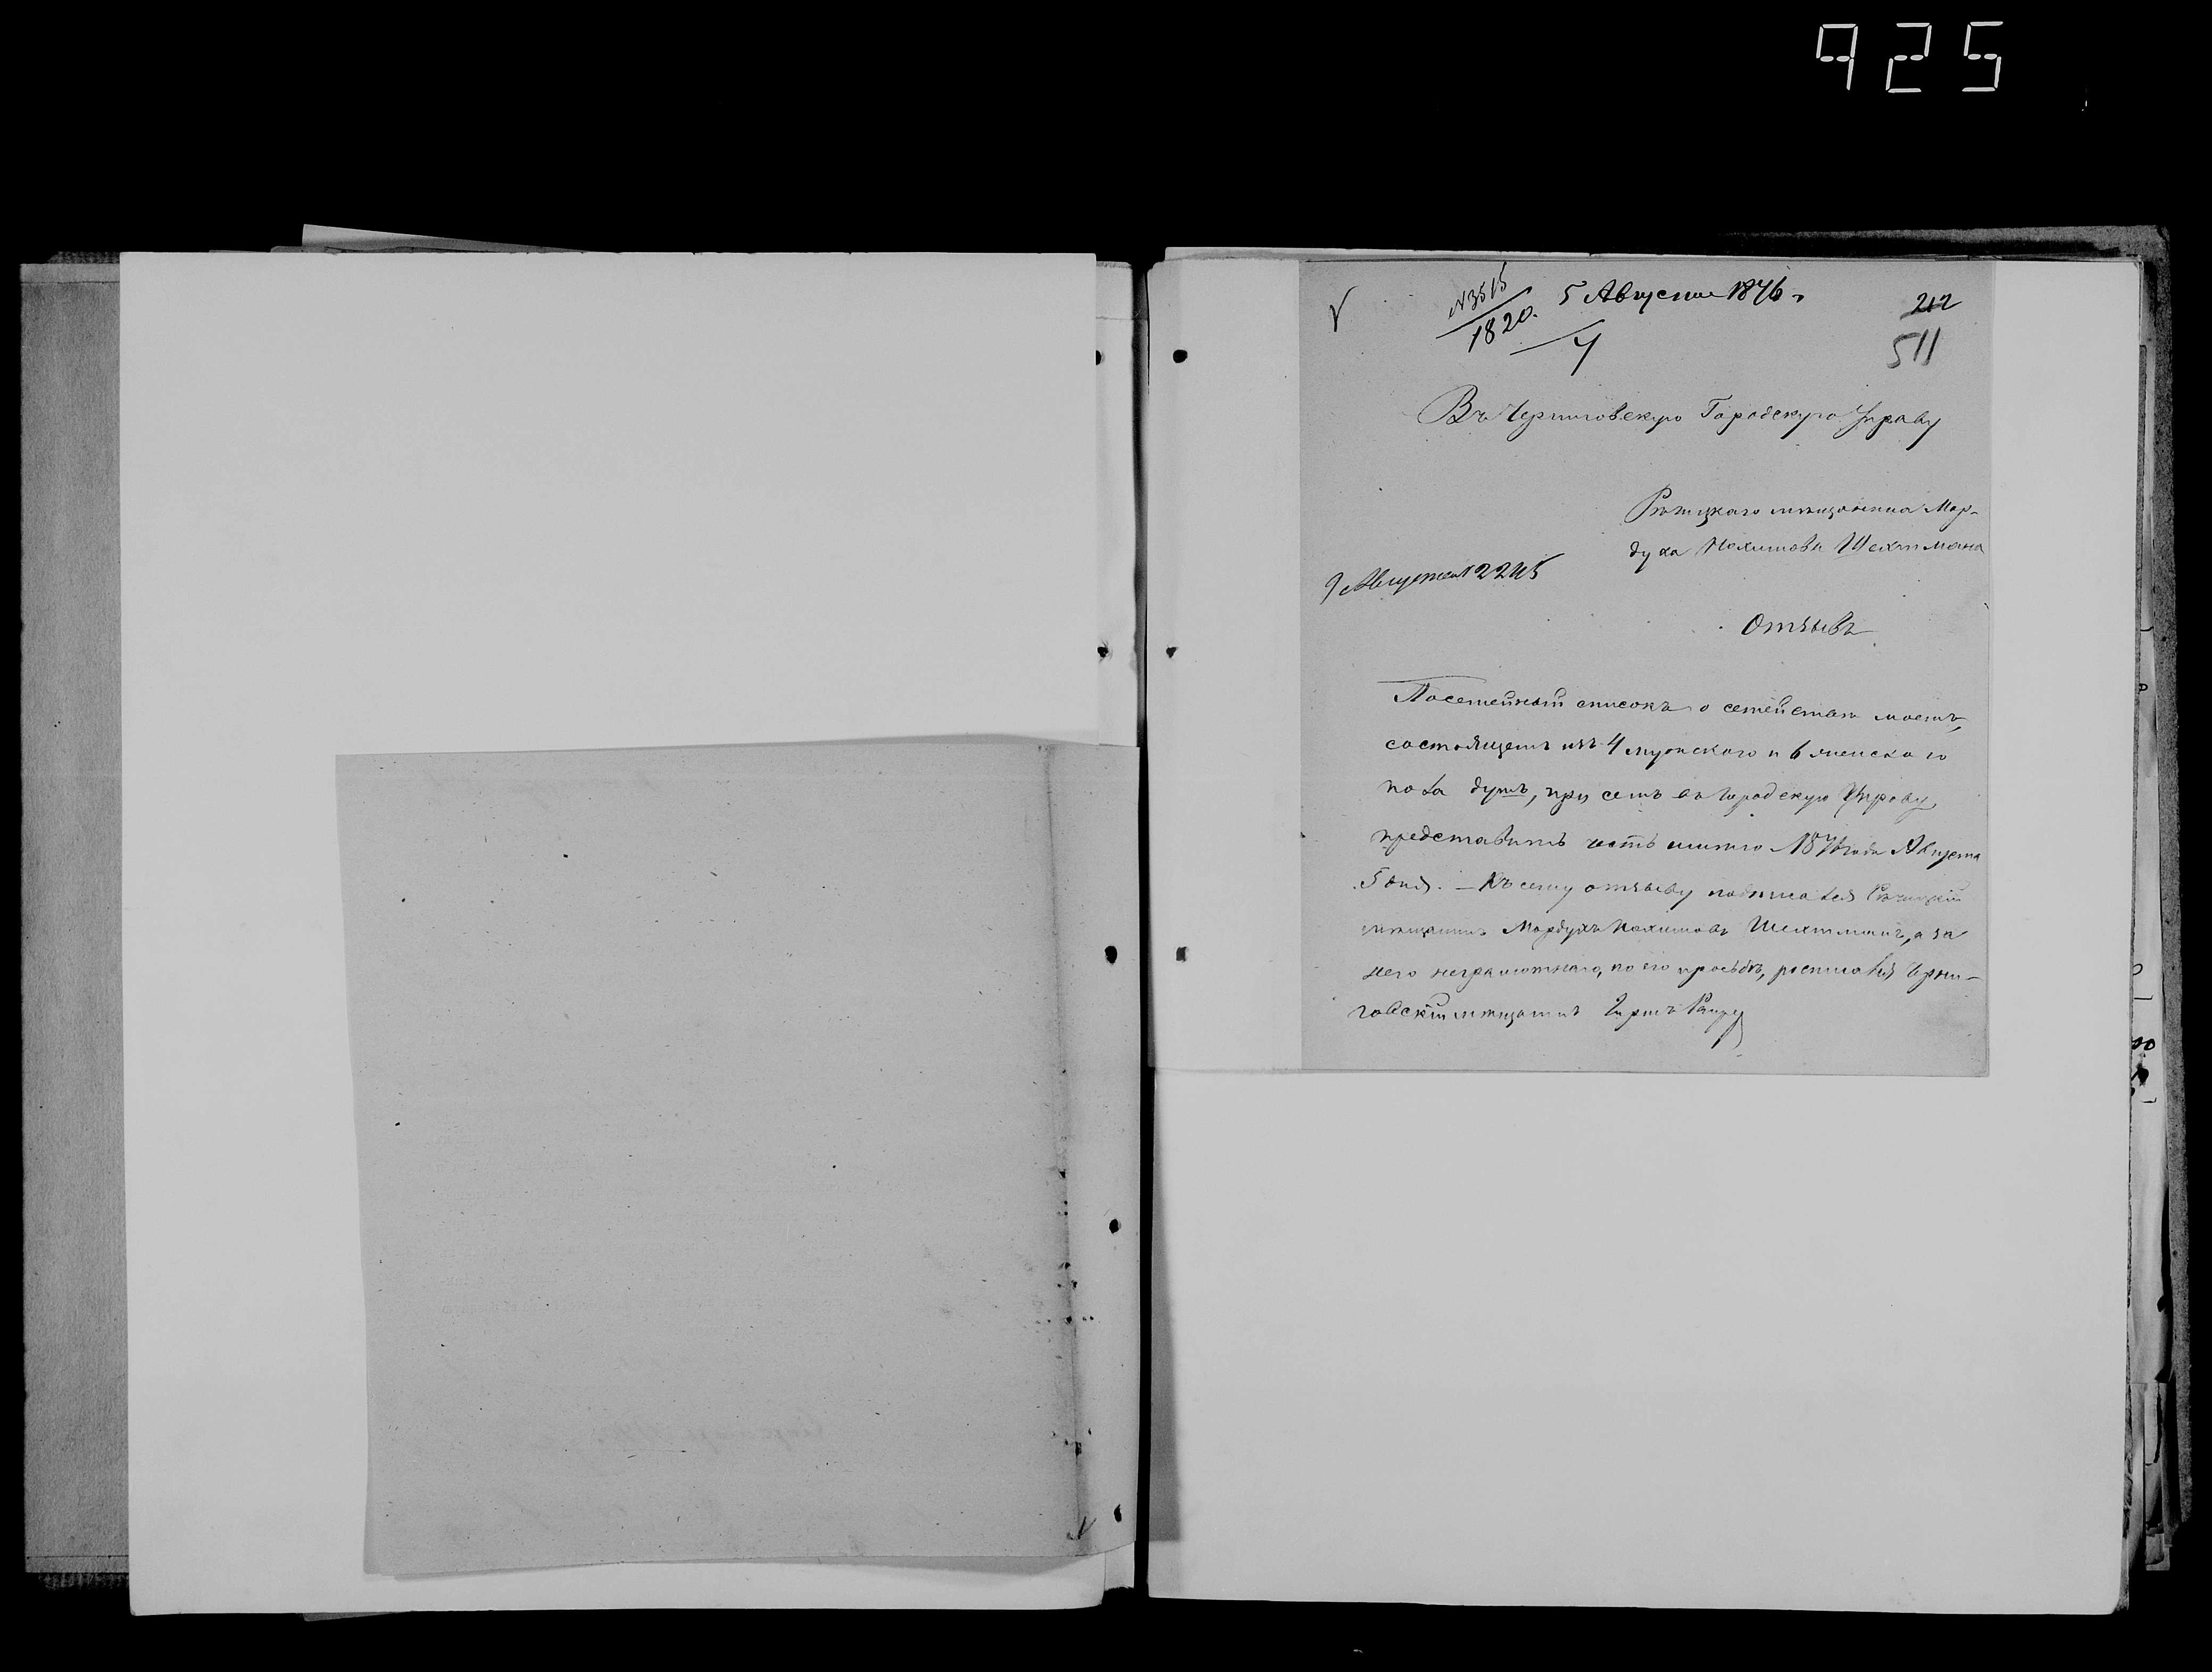 925
№3515
1820.
5 Августа 1876 г
4
212
511
Въ Черниговскую Городскую Управу
Рѣчицкаго мѣщанина Мор-
духа Нохимова Шехтмана
9 Августа 2245
Отзывъ
Посемейный списокъ о семействѣ моемъ,
состоящемъ изъ 4 мужскаго и 6 женскаго
пола душъ, при семъ въ Городскую Управу
представить честь имѣю 1876 года Августа
5 дня. – Къ сему отзыву подписался Рѣчицкій
мѣщанинъ Мордухъ Нохимовъ Шехтманъ, а за
него неграмотнаго, по его просьбѣ, росписался Черни-
говскій мѣщанинъ Гиршъ